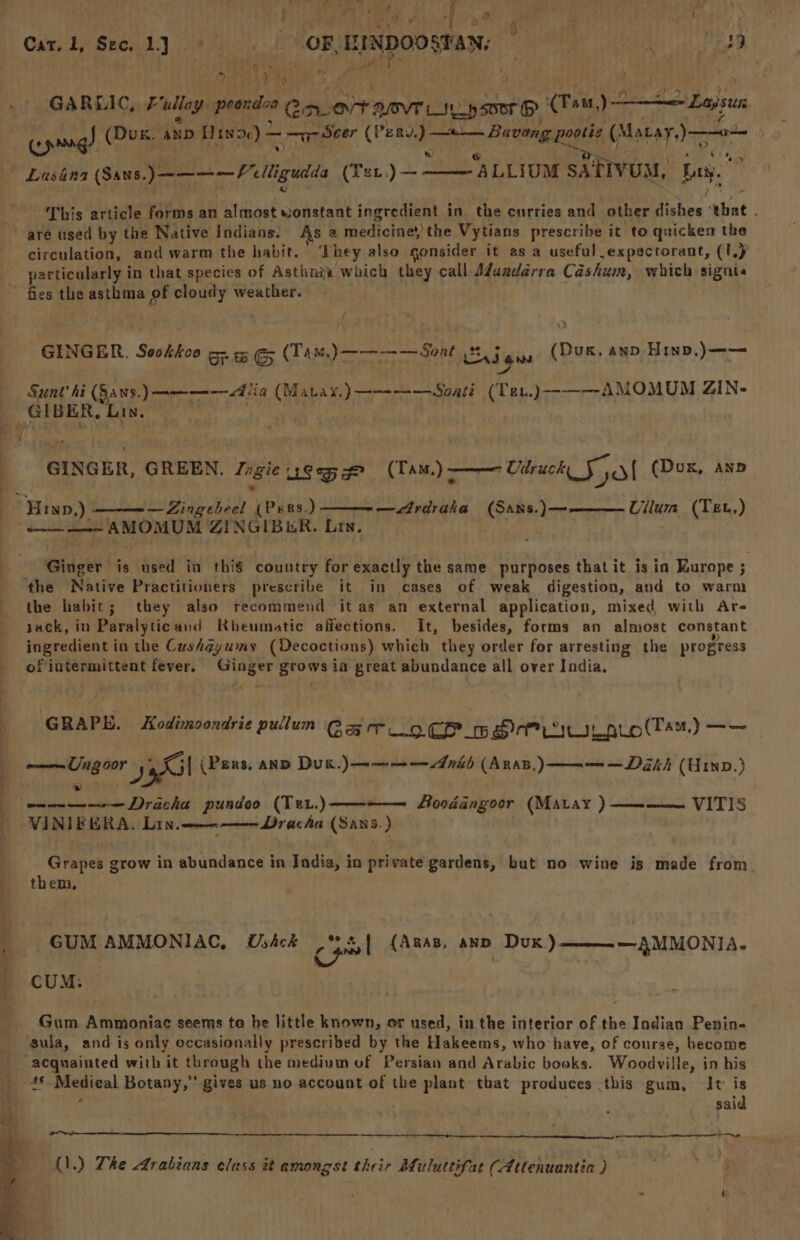 CAT. 1, SEC. 1.] OF HINDOOSTAN.
GARLIC, Vullay poondoo (TAM.)——Laysun
(DUK. AND HIND.)——Seer (PERS.)——Bavang pootie (MALAY.)——
Lashna (SANS.)————Velligudda (TEL.)——ALLIUM SATIVUM, LIN.
This article forms an almost constant ingredient in the curries and other dishes that
are used by the Native Indians. As a medicine, the Vytians prescribe it to quicken the
circulation, and warm the habit. They also consider it as a useful expectorant, (1.)
particularly in that species of Asthma which they call Mundarra Cashum, which signi-
fies the asthma of cloudy weather.
GINGER. Sookkoo (TAM.)————Sont (DUK. AND HIND.)——
Sunt'hi (SANS.)————Alia (MALAY.)————Sonti (TEL.)———AMOMUM ZIN-
GIBER, LIN.
GINGER, GREEN. Ingie இஞ்சி (TAM.)——Udruck ادرك (DUK. AND
HIND.)——Zingebeel (PERS.)——Ardraka (SANS.)——Ullum (TEL.)
——AMOMUM ZINGIBER. LIN.
Ginger is used in this country for exactly the same purposes that it is in Europe;
the Native Practitioners prescribe it in cases of weak digestion, and to warm
the habit; they also recommend it as an external application, mixed with Ar-
rack, in Paralytic and Rheumatic affections. It, besides, forms an almost constant
ingredient in the Cushayums (Decoctions) which they order for arresting the progress
of intermittent fever. Ginger grows in great abundance all over India.
GRAPE. Kodimoondrie pullum (TAM.)——
——Ungoor انگور (PERS. AND DUK.)————Anéb (ARAB.)———Dakh (HIND.)
————Dracha pundoo (TEL.)——Boodangoor (MALAY)——VITIS
VINIFERA. LIN.——Dracha (SANS.)
Grapes grow in abundance in India, in private gardens, but no wine is made from
them.
GUM AMMONIAC, Ushck (ARAB. AND DUK.)——AMMONIA-
CUM.
Gum Ammoniac seems to be little known, or used, in the interior of the Indian Penin-
sula, and is only occasionally prescribed by the Hakeems, who have, of course, become
acquainted with it through the medium of Persian and Arabic books. Woodville, in his
"Medical Botany," gives us no account of the plant that produces this gum. It is
said
(1.) The Arabians class it amongst their Muluttifat (Attenuantia)